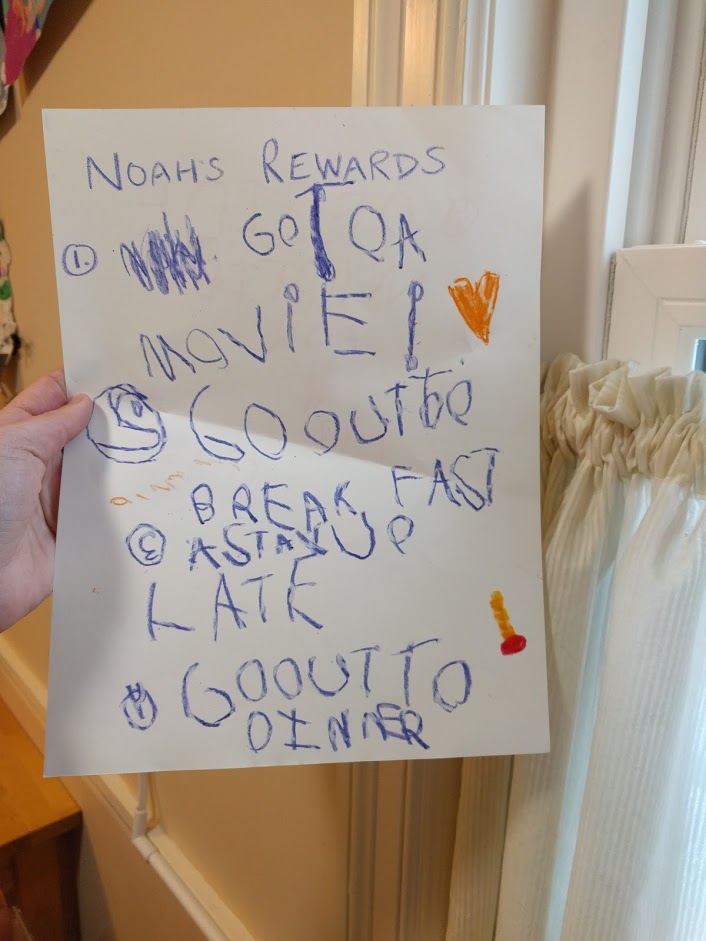 NOAHS REWARDS
1. GO TO A
MOVIE!
GO OUT TO
BREAK FAST
3 A STAY UP
LATE
4 GO OUT TO
DINNER